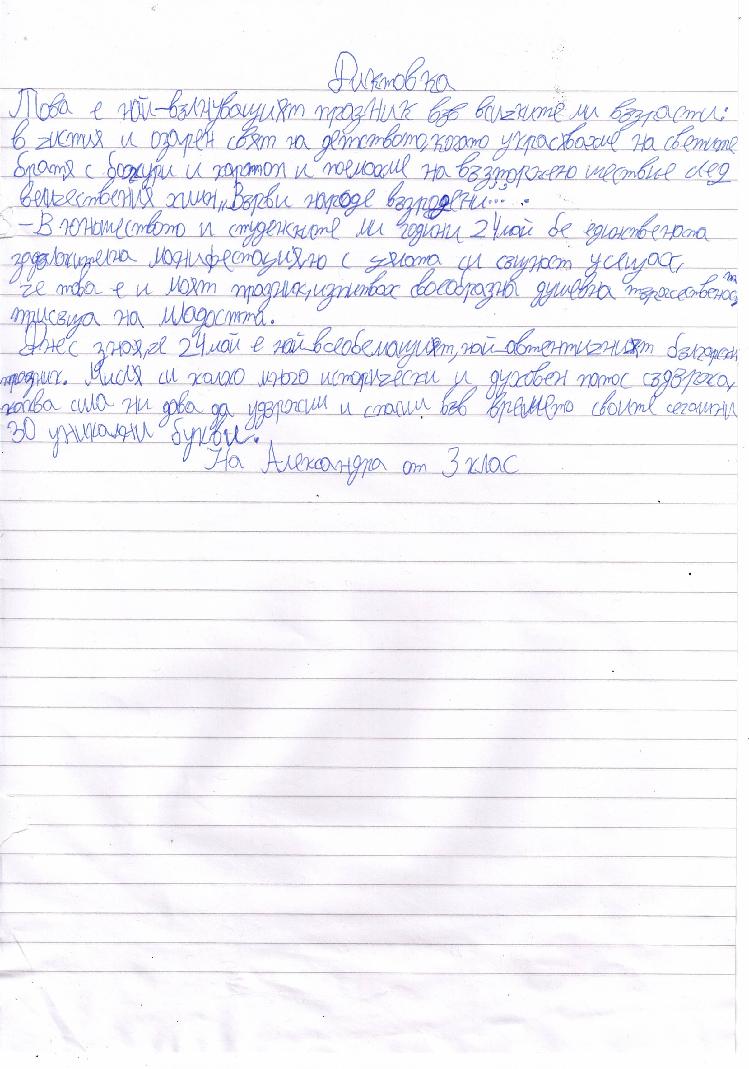 Диктовка
Това е най-вълнуващият празник във всичките ми възрасти:
в чистия и озарен свят на детството, когато украсяваме на светите
братя с божури и здравец и поемаме на възторжено шествие след
величествения химн „Върви народе възродени...".
-В юношеството и студенските ми години 24 май бе единствената
задължителна манифестация, но с цялата си същност усещах,
че това е и моят празник, изпитвах своеобразна душевна тържественост,
присъща на младостта.
Днес зная, че 24 май е най-всеобемащият, най-автентичният български
празник. Мисля си колко много исторически и духовен патос съдържа,
каква сила ни дава да удържим и спасим във времето своите сегашни
30 уникални букви.
На Александра от 3 клас